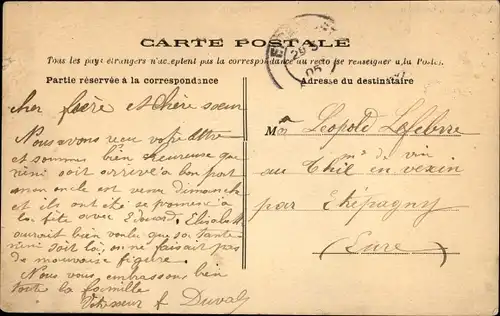 CARTE POSTALE
Tous les pays étrangers n'acceptent pas la correspondance au recto (se renseigner à la Poste).
Partie réservée à la correspondance
Adresse du destinataire
cher frère et chère soeur
Nous avons reçu votre lettre
et sommes bien heureuse que
réni soit arrivé a bon port
mon oncle est venu dimanche
et ils ont été se promener à
la fête avec Edouard. Elisabeth
aurait bien voulu que sa tante
réni soit là, on ne faisait pas
de mauvaise figure.
Nous vous embrassons bien
toute la famille
Votre soeur A Duval
Mr Léopold Lefebvre
md de vin
au Thil en vexin
par Etrépagny
(Eure)